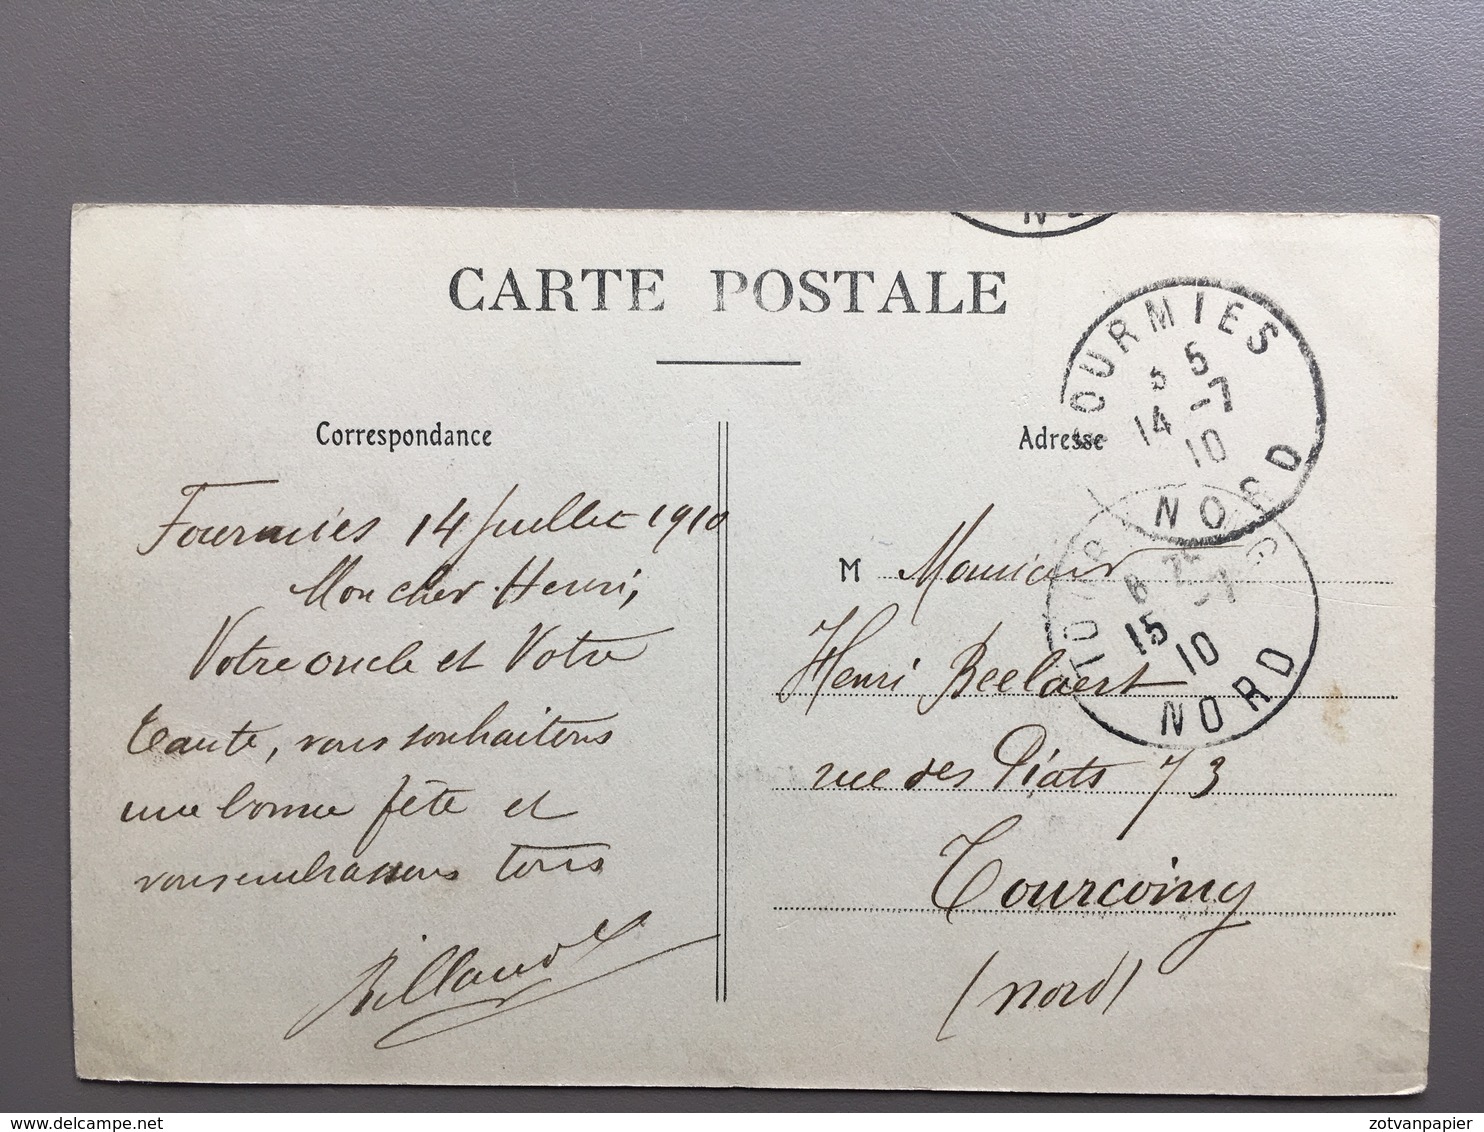 CARTE POSTALE
Correspondance
Fourmies 14 Juillet 1910
Mon cher Henri,
Votre oncle et Votre
tante, vous souhaitons
une bonne fête et
vous embrassons tous
Billaud
Adresse
M Monsieur
Henri Beelaert
rue des Piats 73
Tourcoing
(Nord)
OURMIES
5
14 -7
10
NORD
15 -7
10
NORD
www.delcampe.net
zotvanpapier